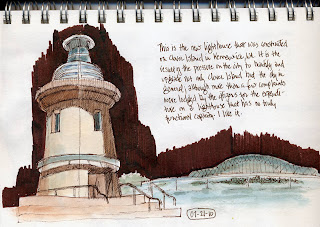 This is the new lighthouse that was constructed
on Clover Island in Kennewick, WA. It is the
result of the pressure in the city to beautify and
upgrade not only Clover Island but the city in
general, although more than a few complaints
were lodged by the citizens for the expendi-
ture on a lighthouse that has no truly
functional capacity. I like it.
07-23-10